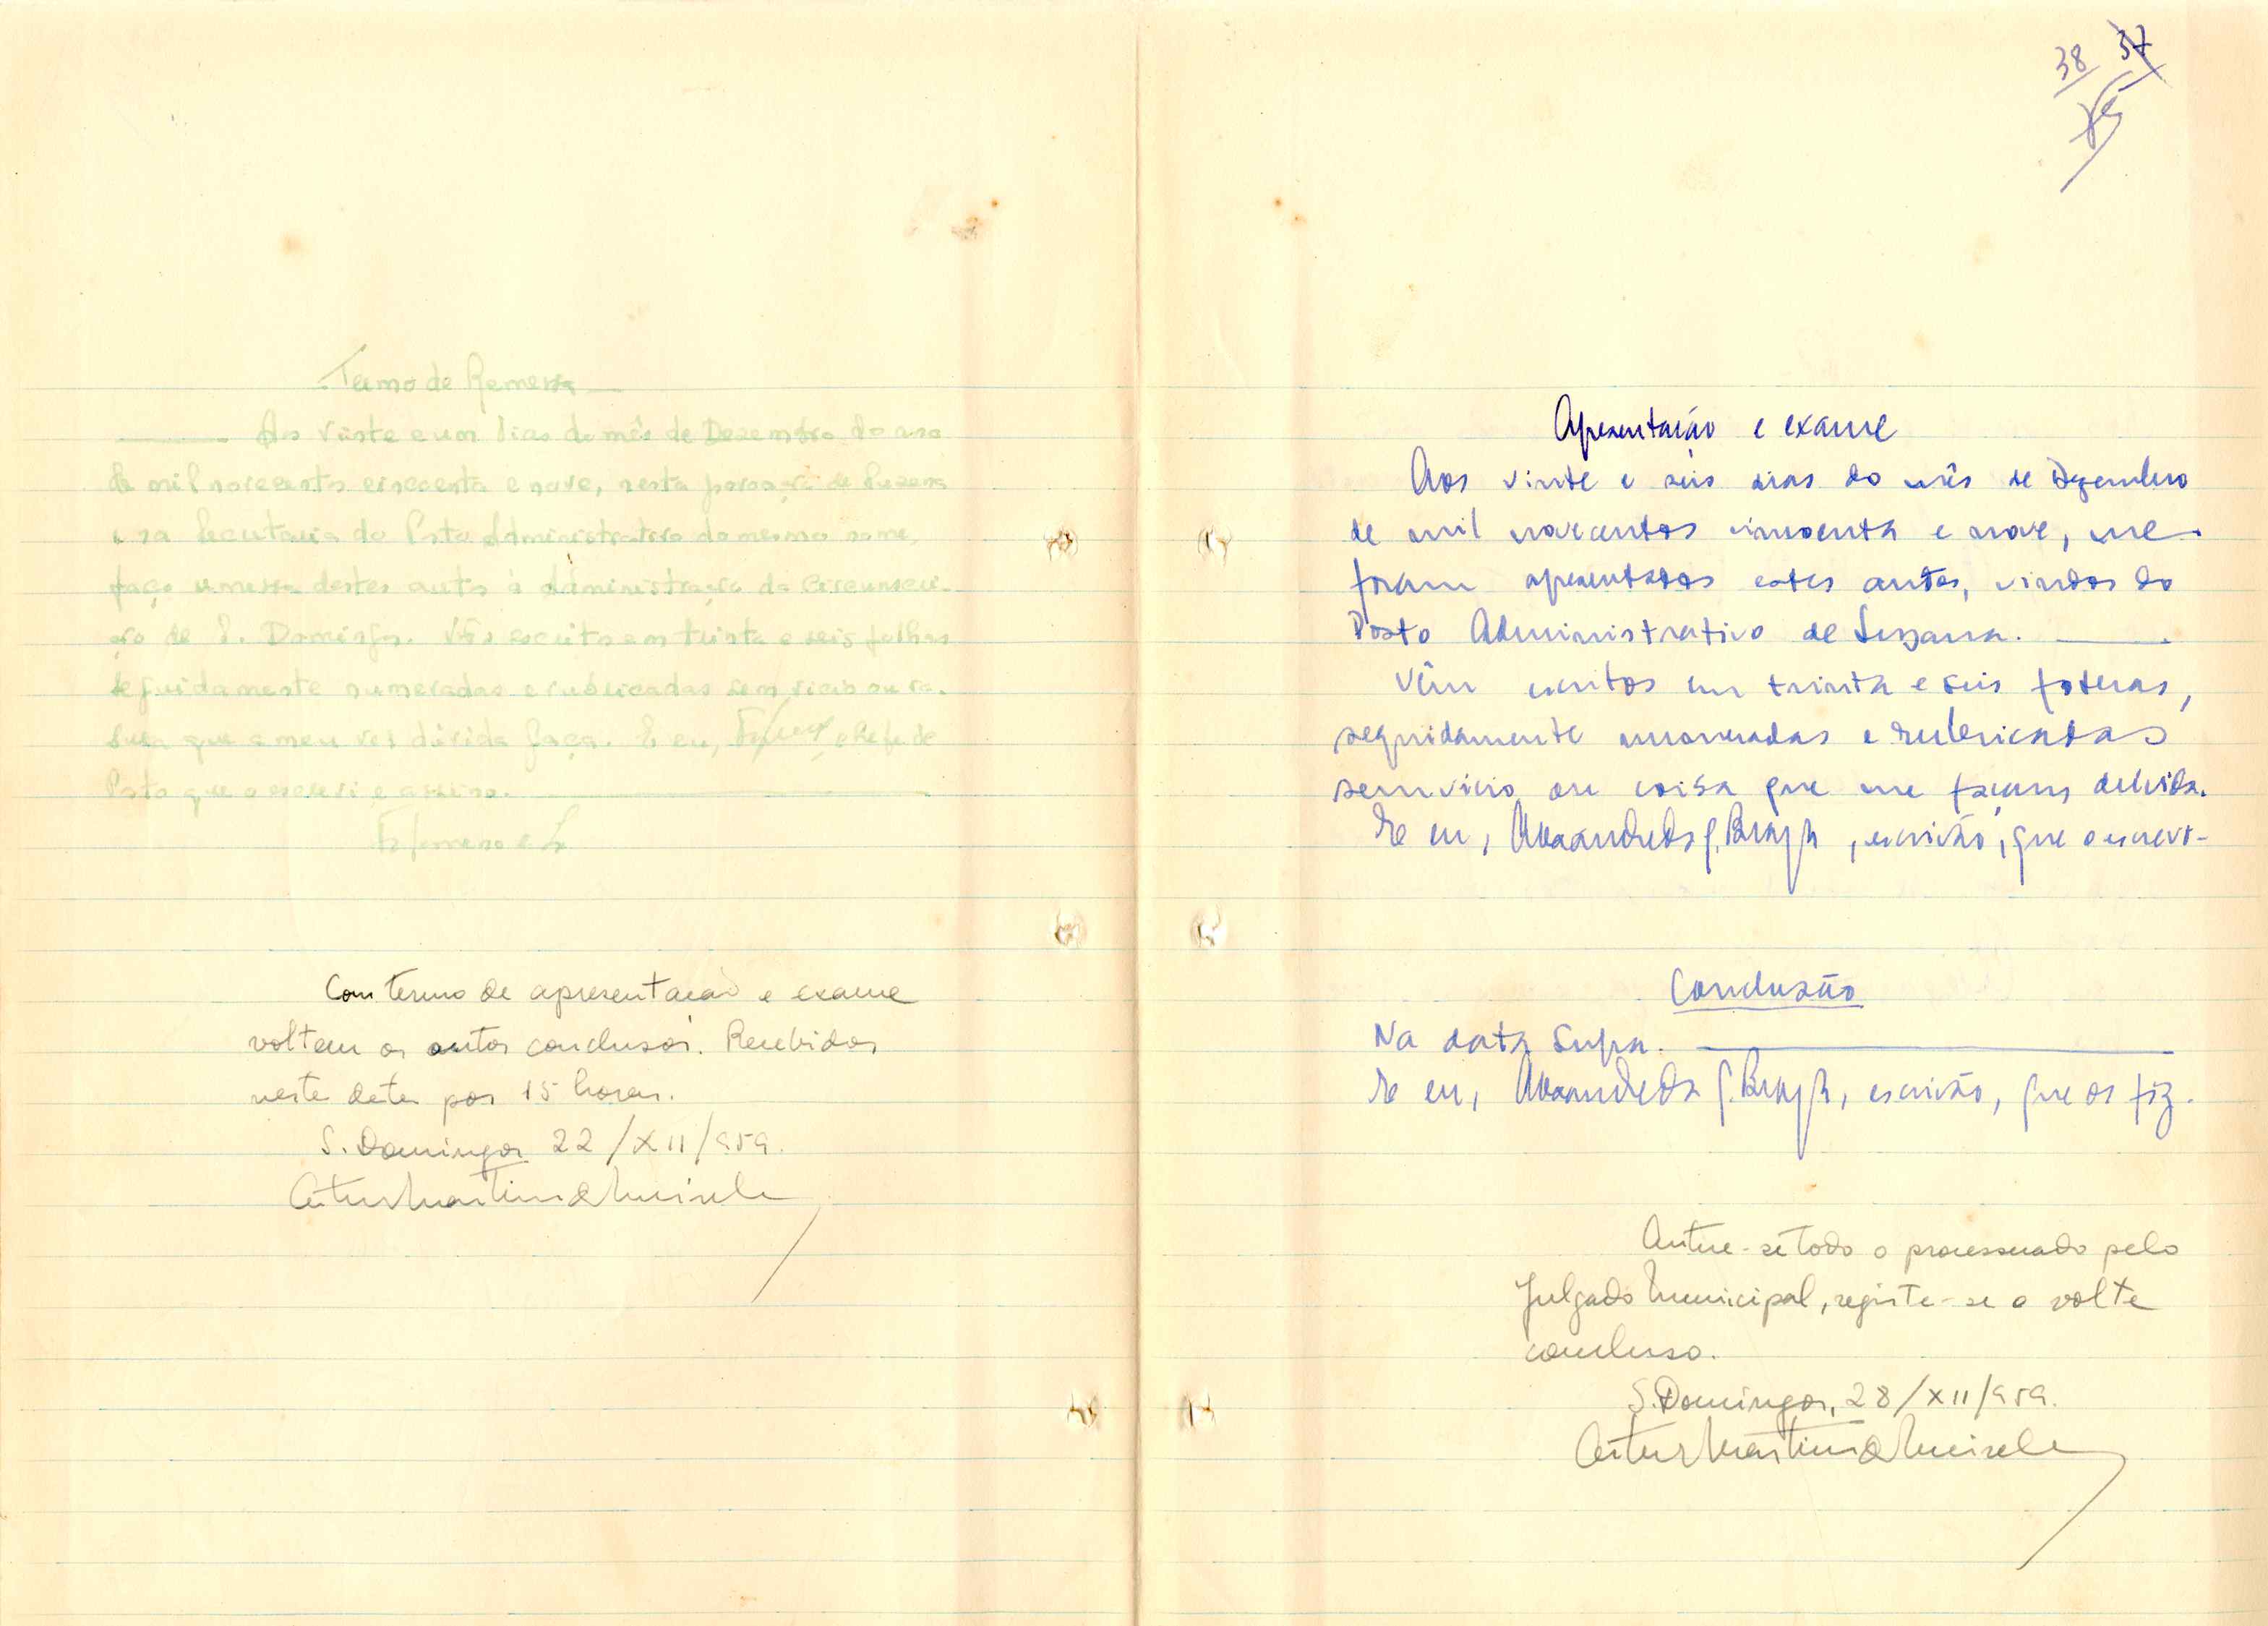 Termo de Remessa
Aos vinte e um dias do mês de Dezembro do ano
de mil novecentos cincoenta e nove, nesta povoação de Suzana
e na Secretaria do Posto Administrativo do mesmo nome,
faço remessa destes autos à Administração da Circunscri-
ção de S. Domingos. Vão escritos em trinta e seis folhas
seguidamente numeradas e rubricadas sem vicio ou ra-
sura que a meu ver dúvida faça. E eu, chefe de
Posto que o escrevi e assino.
Com termo de apresentação e exame
voltem os autos conclusos. Recebidos
nesta data por 15 horas.
S. Domingos 22/XII/959.
38 37
Apresentação e exame
Aos vinte e seis dias do mês de Dezembro
de mil novecentos cincoenta e nove, me
foram apresentados estes autos, vindos do
Posto Administrativo de Suzana.
Vêm escritos em trinta e seis folhas,
seguidamente numeradas e rubricadas
sem vicio ou coisa que me façam dúvida.
E eu, escrivão, que o escrevi-
Conclusão
Na data supra.
E eu, escrivão, que os fiz.
Autue-se todo o processado pelo
Julgado Municipal, registe-se e volte
concluso.
S. Domingos, 28/XII/959.